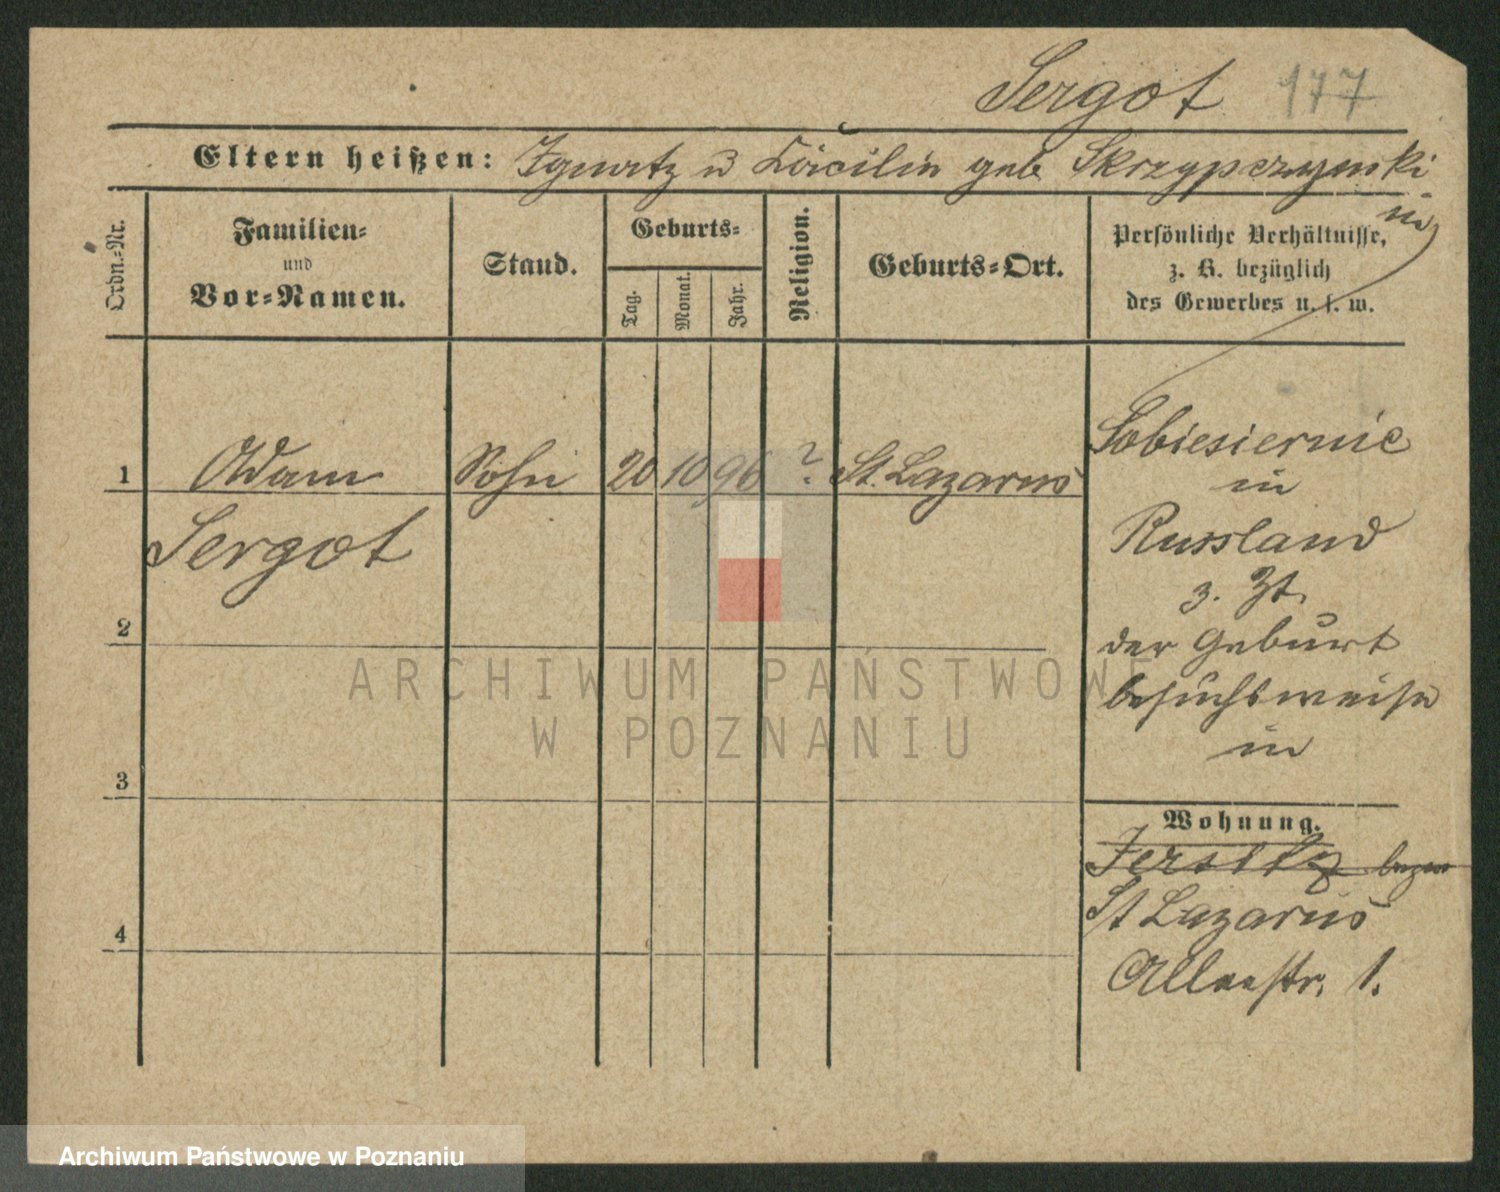 Sergot 177
Eltern heißen: Ignatz u Cäcilie geb Skrzypczynski
in
Ordn.-Nr.
Familien-
und
Vor-Namen.
Stand.
Geburts-
Tag.
Monat.
Jahr.
Religion.
Geburts-Ort.
Persönliche Verhältnisse,
z. B. bezüglich
des Gewerbes u. s. w.
1 Adam Sohn 20 10 96 ? St. Lazarus
Sergot
2
3
4
Sobiesiernie
in
Russland
z. Zt.
der Geburt
besuchsweise
in
Wohnung.
Jersitz
St Lazarus
Alleestr. 1.
ARCHIWUM PAŃSTWOWE
W POZNANIU
Archiwum Państwowe w Poznaniu